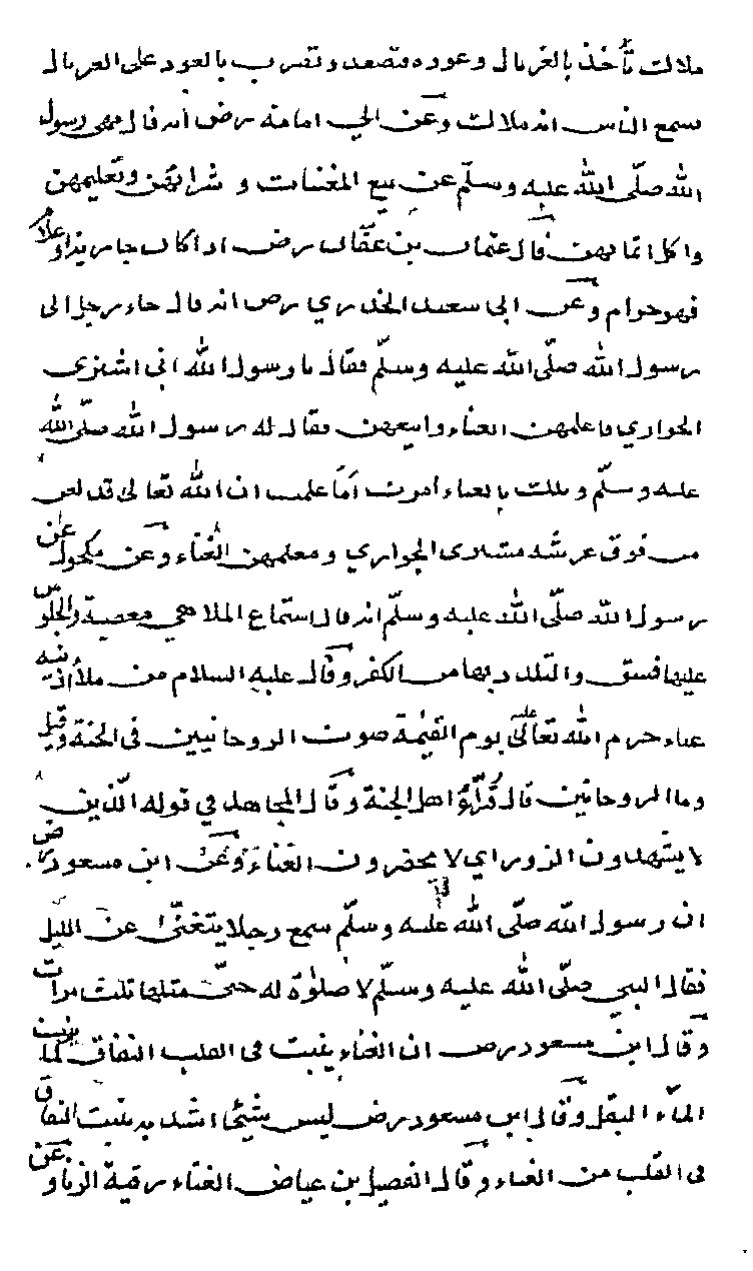 ملالت تأخذ بالغربال وعوده فتصعد وتضرب بالعود على الغربال
يسمع الناس انه ملالت وعن ابي امامة رض انه قال نهى رسول
الله صلّى الله عليه وسلّم عن بيع المغنيات و شرائهن وتعليمهن
واكل اثمانهن قال عثمان بن عفّان رض اذا كان
فهو حرام وعن ابي سعيد الخدري رض انه قال جاء رجل الى
رسول الله صلّى الله عليه وسلّم فقال يا رسول الله انى اشترى
الجواري فاعلمهن الغناء وابيعهن فقال له رسول الله صلّى الله
عليه وسلّم ويلك بالغناء امرت أما علمت ان الله تعالى قد لعن
من فوق عرشه مشترى الجواري ومعلمهن الغناء وعن مكحول عن
رسول الله صلّى الله عليه وسلّم انه قال استماع الملاهي معصية والجلوس
عليها فسق والتلذذ بها من الكفر وقال عليه السلام من ملأ اذنيه
غناء حرم الله تعالى عليه يوم القيٰمة صوت الروحانيين فى الجنة وقيل
وما الروحانين قال قُرّاءُ اهل الجنة وقال المجاهد في قوله الّذين
لا يشهدون الزور اي لا يحضرون الغناء وعن ابن مسعود رض
ان رسول الله صلّى الله عليه وسلّم سمع رجلا يتغنّى من الليل
فقال النبي صلّى الله عليه وسلّم لا صلوٰة له حتى مثلها ثلث مرات
وقال ابن مسعود رض ان الغناء ينبت فى القلب النفاق كما ينبت
الماء البقل وقال ابن مسعود رض ليس شيئا اشد ينبت النفاق
فى القلب من الغناء وقال الفضيل بن عياض الغناء رقية الزنا وعن